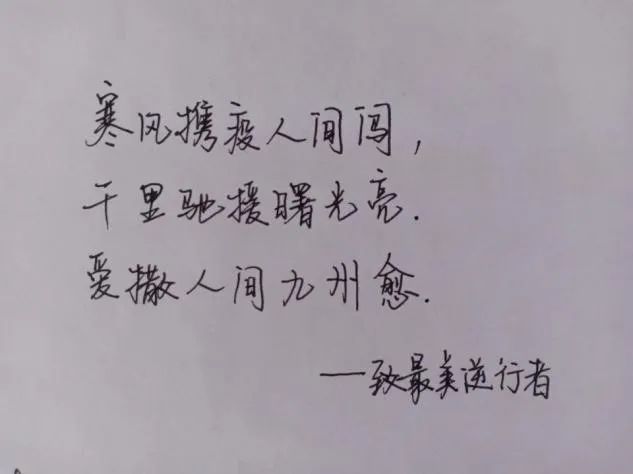 寒风携疫人间闯，
千里驰援曙光亮.
爱撒人间九州愈.
——致最美逆行者